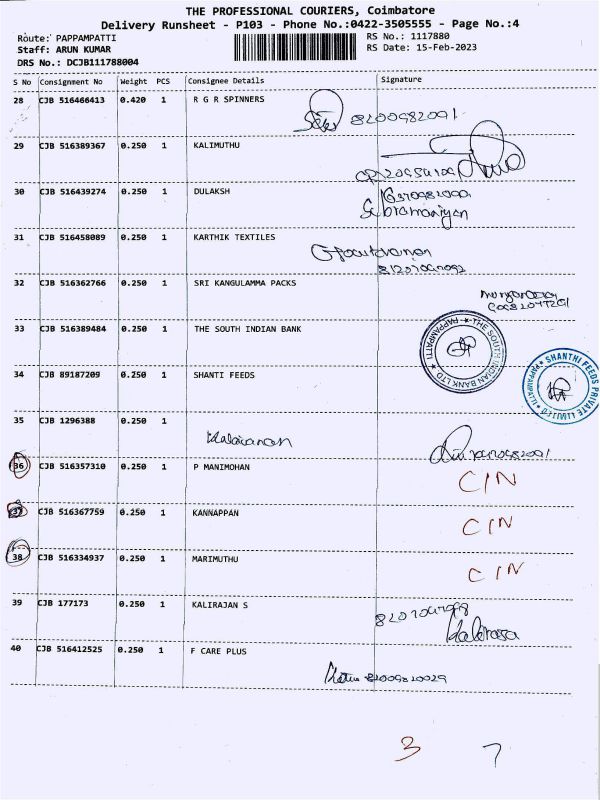 THE PROFESSIONAL COURIERS, Coimbatore
Delivery Runsheet - P103 - Phone No.:0422-3505555 - Page No.:4
Route: PAPPAMPATTI
RS No.: 1117880
Staff: ARUN KUMAR
RS Date: 15-Feb-2023
DRS No.: DCJB111788004
S No Consignment No Weight PCS Consignee Details Signature
28 CJB 516466413 0.420 1 R G R SPINNERS
8200982091
29 CJB 516389367 0.250 1 KALIMUTHU
30 CJB 516439274 0.250 1 DULAKSH
Subramaniyan
31 CJB 516458089 0.250 1 KARTHIK TEXTILES
32 CJB 516362766 0.250 1 SRI KANGULAMMA PACKS
33 CJB 516389484 0.250 1 THE SOUTH INDIAN BANK
THE SOUTH INDIAN BANK LTD ★ PAPPAMPATTI ★
34 CJB 89187209 0.250 1 SHANTI FEEDS
★ SHANTHI FEEDS PRIVATE LIMITED ★ PAPPAMPATTI
35 CJB 1296388 0.250 1
36 CJB 516357310 0.250 1 P MANIMOHAN
CIN
37 CJB 516367759 0.250 1 KANNAPPAN
CIN
38 CJB 516334937 0.250 1 MARIMUTHU
CIN
39 CJB 177173 0.250 1 KALIRAJAN S
40 CJB 516412525 0.250 1 F CARE PLUS
3 7